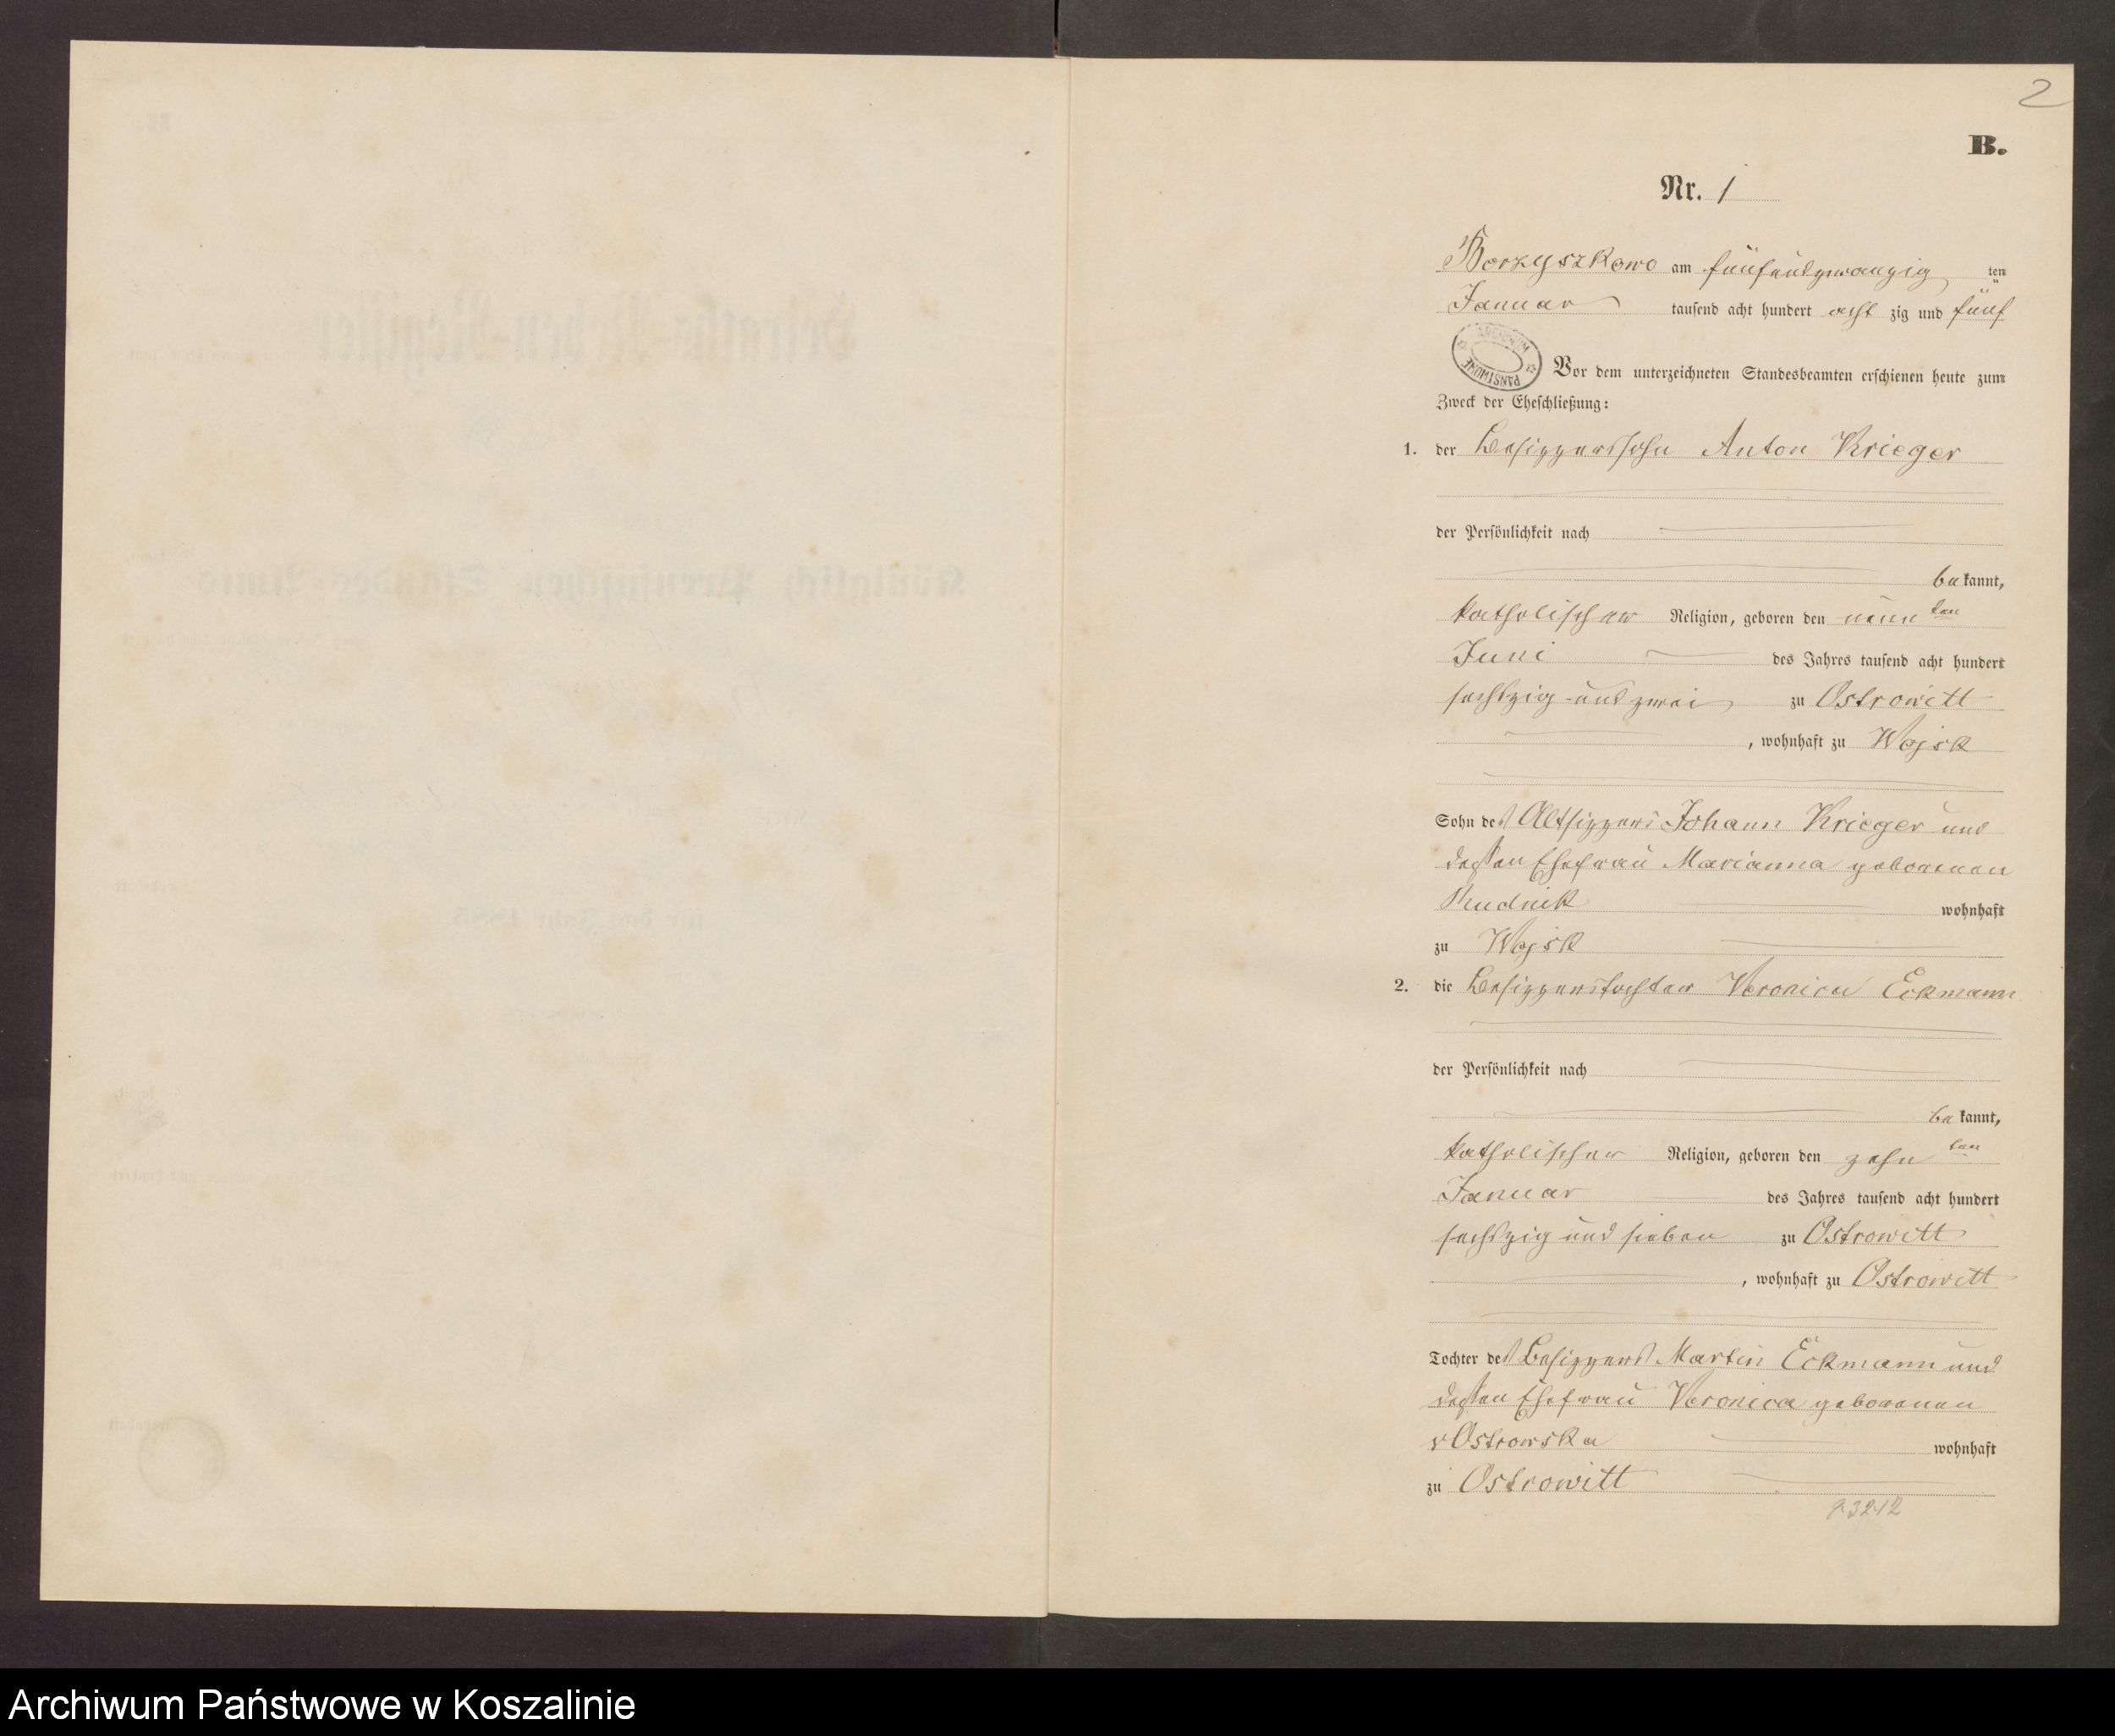 2
B.
Nr. 1
Borzyszkowo am fünfundzwanzig ten
Januar tausend acht hundert acht zig und fünf
ARCHIWUM PAŃSTWOWE
Vor dem unterzeichneten Standesbeamten erschienen heute zum
Zweck der Eheschließung:
1. der Besitzerssohn Anton Krieger
der Persönlichkeit nach
be kannt,
katholischer Religion, geboren den neun ten
Juni des Jahres tausend acht hundert
sechszig und zwei zu Ostrowitt
, wohnhaft zu Wojsk
Sohn des Altsitzers Johann Krieger und
dessen Ehefrau Marianna geborenen
Rudnik wohnhaft
zu Wojsk
2. die Besitzerstochter Veronica Eckmann
der Persönlichkeit nach
be kannt,
katholischer Religion, geboren den zehn ten
Januar des Jahres tausend acht hundert
sechszig und sieben zu Ostrowitt
, wohnhaft zu Ostrowitt
Tochter des Besitzers Martin Eckmann und
dessen Ehefrau Veronica geborenen
v Ostrowska wohnhaft
zu Ostrowitt
Archiwum Państwowe w Koszalinie